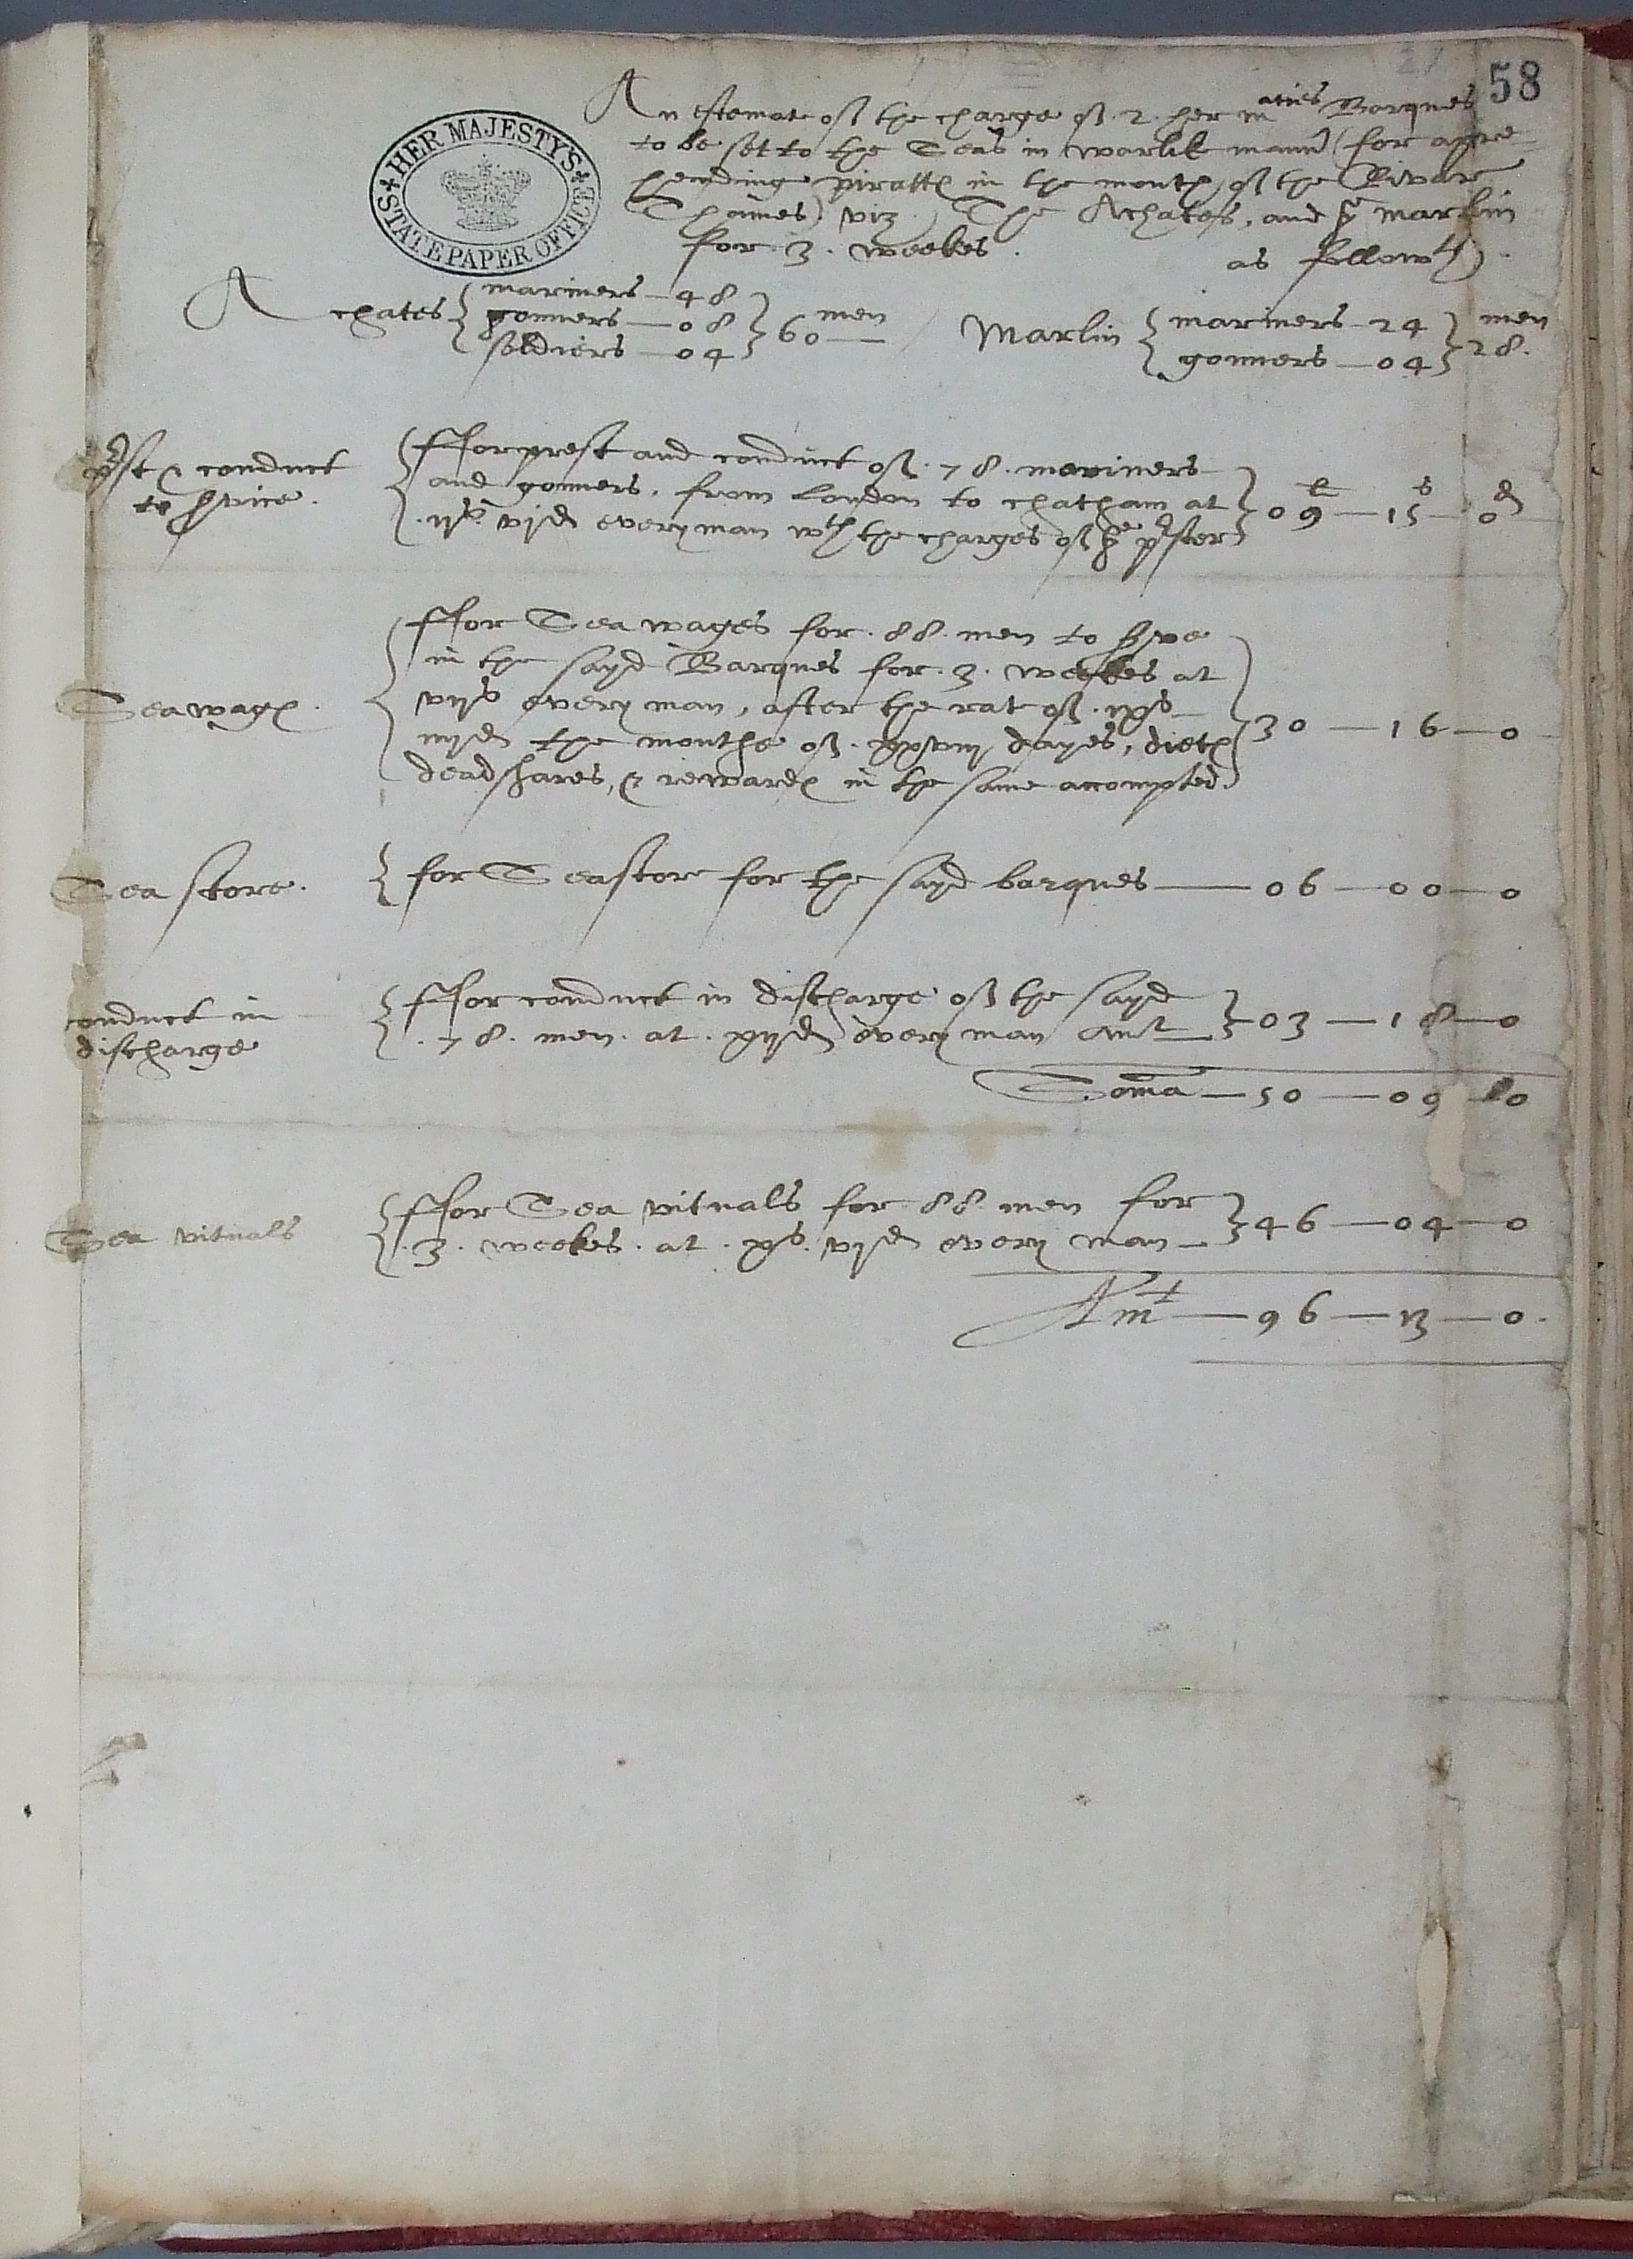 58
HER MAJESTY'S STATE PAPER OFFICE
An estemate of the charge of .2. her maties Barques
to be set to the Seas in warlik manner (for appre=
hending pirattes in the mouth of the Rivare
Thaimes) viz. The Achates, and ye marlin
for .3. weekes . as followth.
Achates { mariners — 48
gonners — 08 } 60 men
soldiers — 04
Marlin { mariners — 24 } men
gonners — 04 } 28.
prst & conduct
to service.
{ ffor prest and conduct of .78. mariners
and gonners, from london to chatham at
.ijs. vjd every man wth the charges of ye prster } 09 — 15 — 0
li s d
Sea wages.
{ ffor Sea wages for .88. men to serve
in the sayd Barques for .3. weekes at
vijs every man, after the rat of .ixs
iiijd the monthe of .xxviij dayes, dietes
deadshares, & rewardes in the same accompted. } 30 — 16 — 0
Sea store.
{ for Seastore for the sayd barques — 06 — 00 — 0
conduct in
discharge
{ ffor conduct in discharge of the sayd
.78. men. at .xijd every man Amt } 03 — 18 — 0
Soma — 50 — 09 — 0
Sea vituals
{ ffor Sea vituals for .88. men for
.3. weekes. at .xs. vjd every man } 46 — 04 — 0
Amt — 96 — 13 — 0.